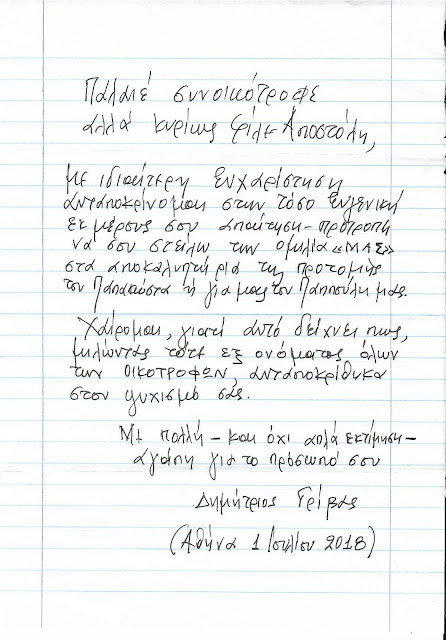 Παλαιέ συνοικότροφε
αλλά κυρίως φίλε Αποστόλη,
με ιδιαίτερη ευχαρίστηση
ανταποκρίνομαι στην τόσο ευγενική
εκ μέρους σου απαίτηση-προτροπή
να σου στείλω την ομιλία «ΜΑΣ»
στα αποκαλυπτήρια της προτομής
του Παπακώστα ή για μας του Παππούλη μας.
Χαίρομαι, γιατί αυτό δείχνει πως,
μιλώντας τότε εξ ονόματος όλων
των ΟΙΚΟΤΡΟΦΩΝ, ανταποκρίθηκα
στον ψυχισμό σας.
Με πολλή - και όχι απλά εκτίμηση -
αγάπη για το πρόσωπό σου
Δημήτριος Γρίβας
(Αθήνα 1 Ιουλίου 2018)